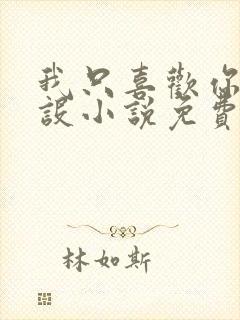 我只喜歡你
設小說免費
林如斯